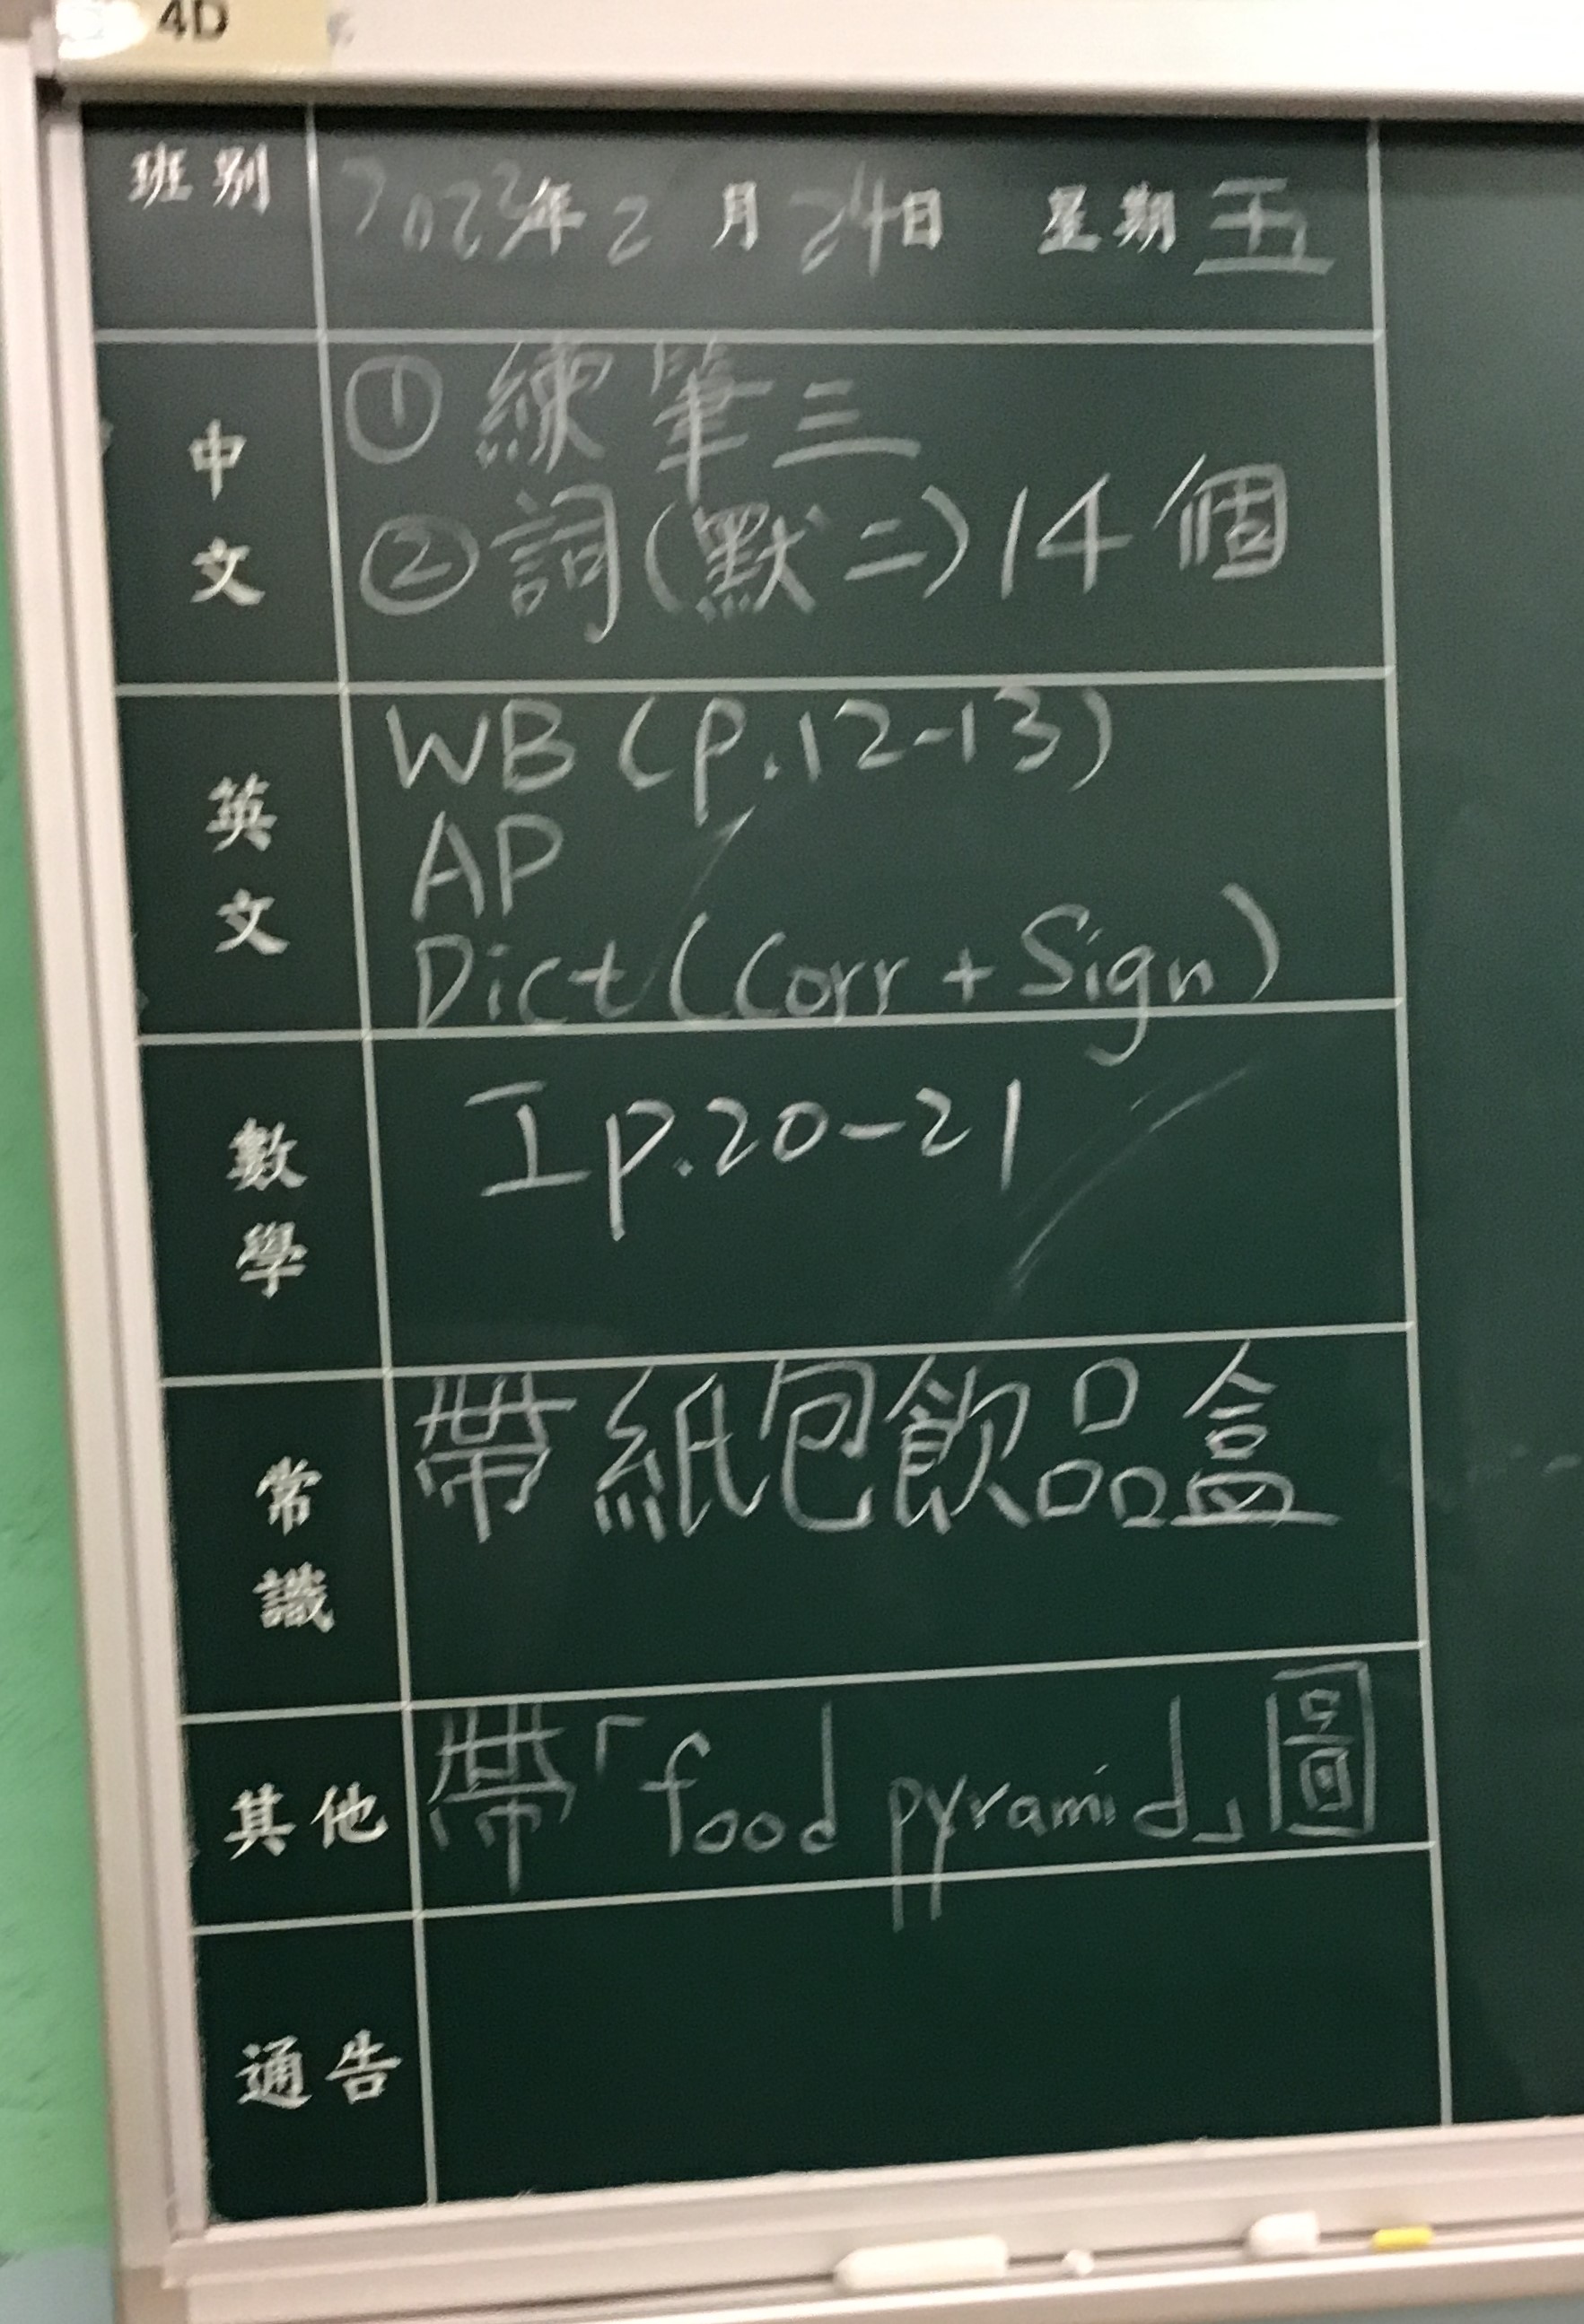 4D
班別 2023年2月24日 星期五
中文 ①練筆三
②詞(默二)14個
英文 WB (p.12-13)
AP
Dict (Corr + Sign)
數學 I p.20-21
常識 帶紙包飲品盒
其他 帶「food pyramid」圖
通告